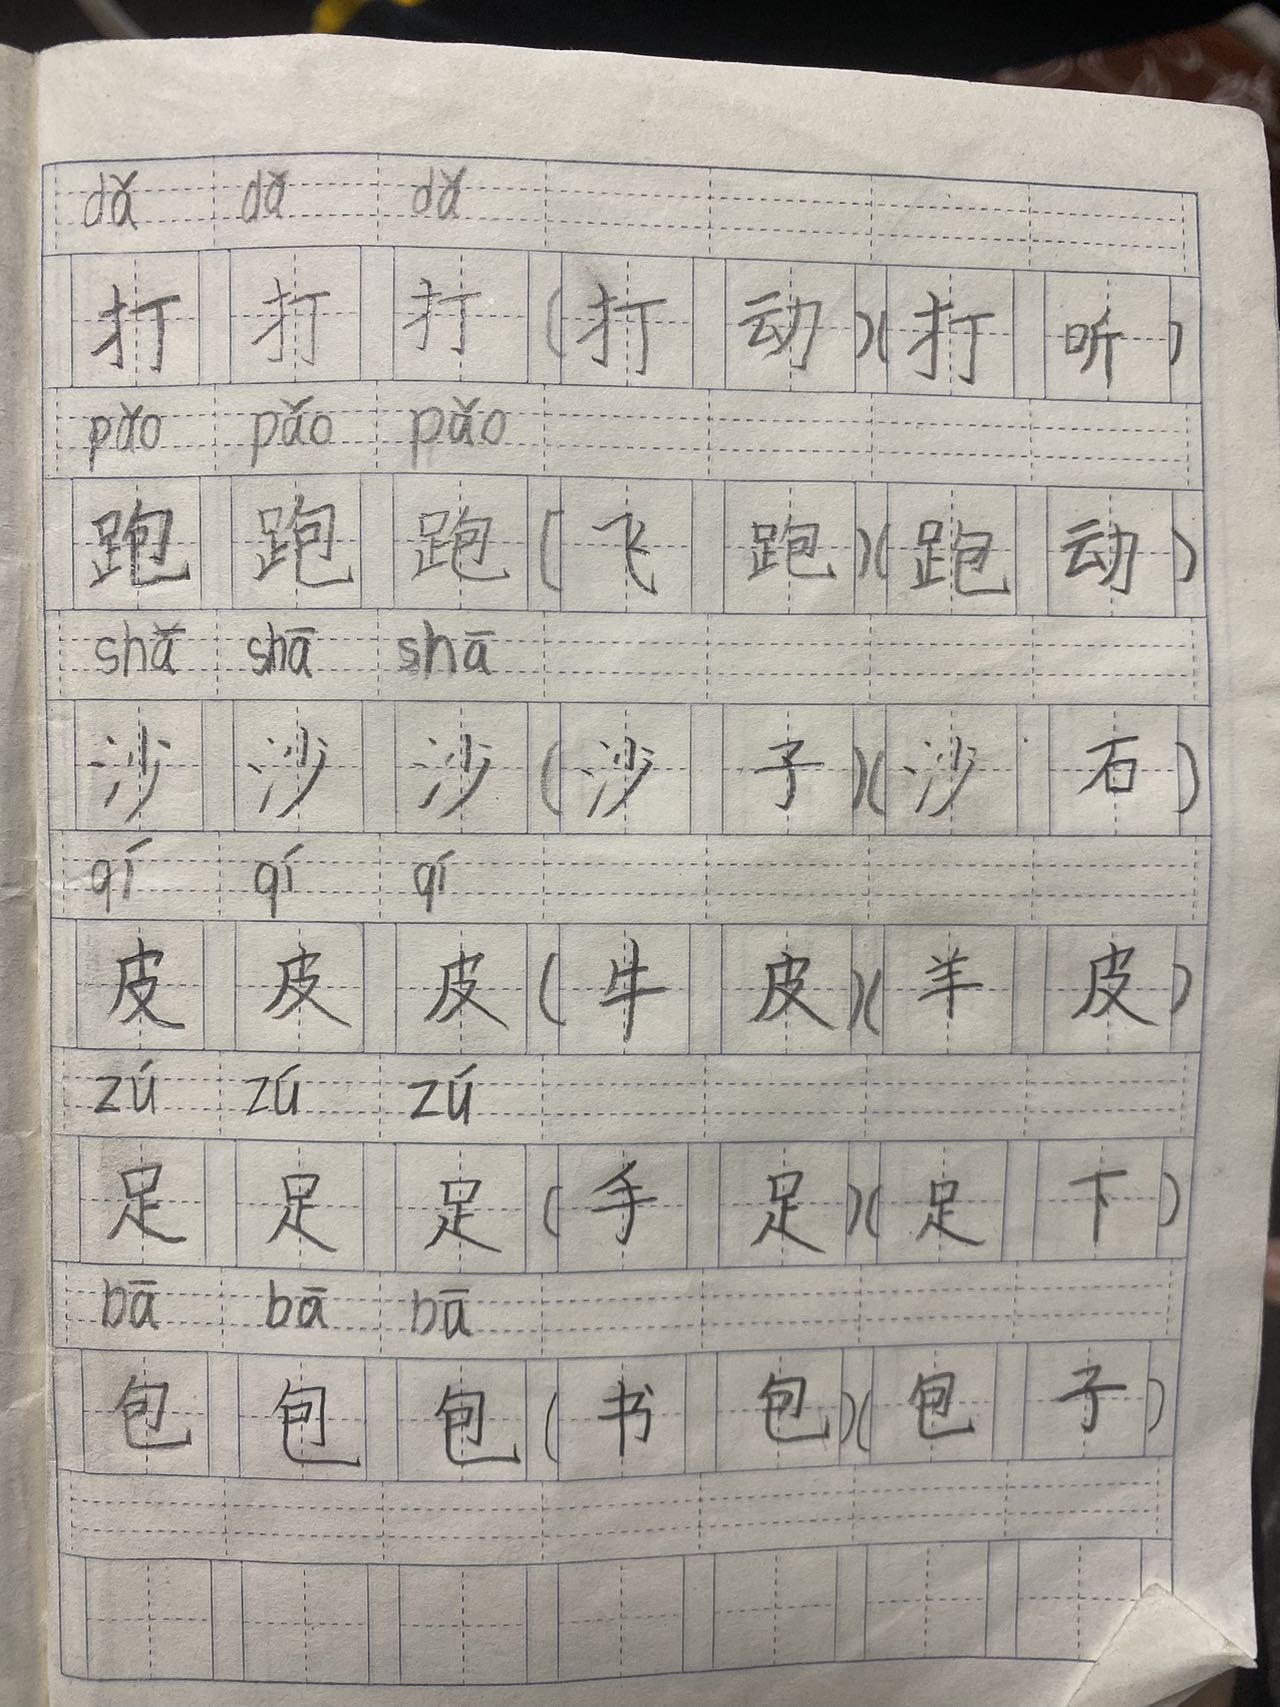 dǎ dǎ dǎ
打 打 打 (打 动)(打 听)
pǎo pǎo pǎo
跑 跑 跑 (飞 跑)(跑 动)
shā shā shā
沙 沙 沙 (沙 子)(沙 石)
qí qí qí
皮 皮 皮 (牛 皮)(羊 皮)
zú zú zú
足 足 足 (手 足)(足 下)
bā bā bā
包 包 包 (书 包)(包 子)